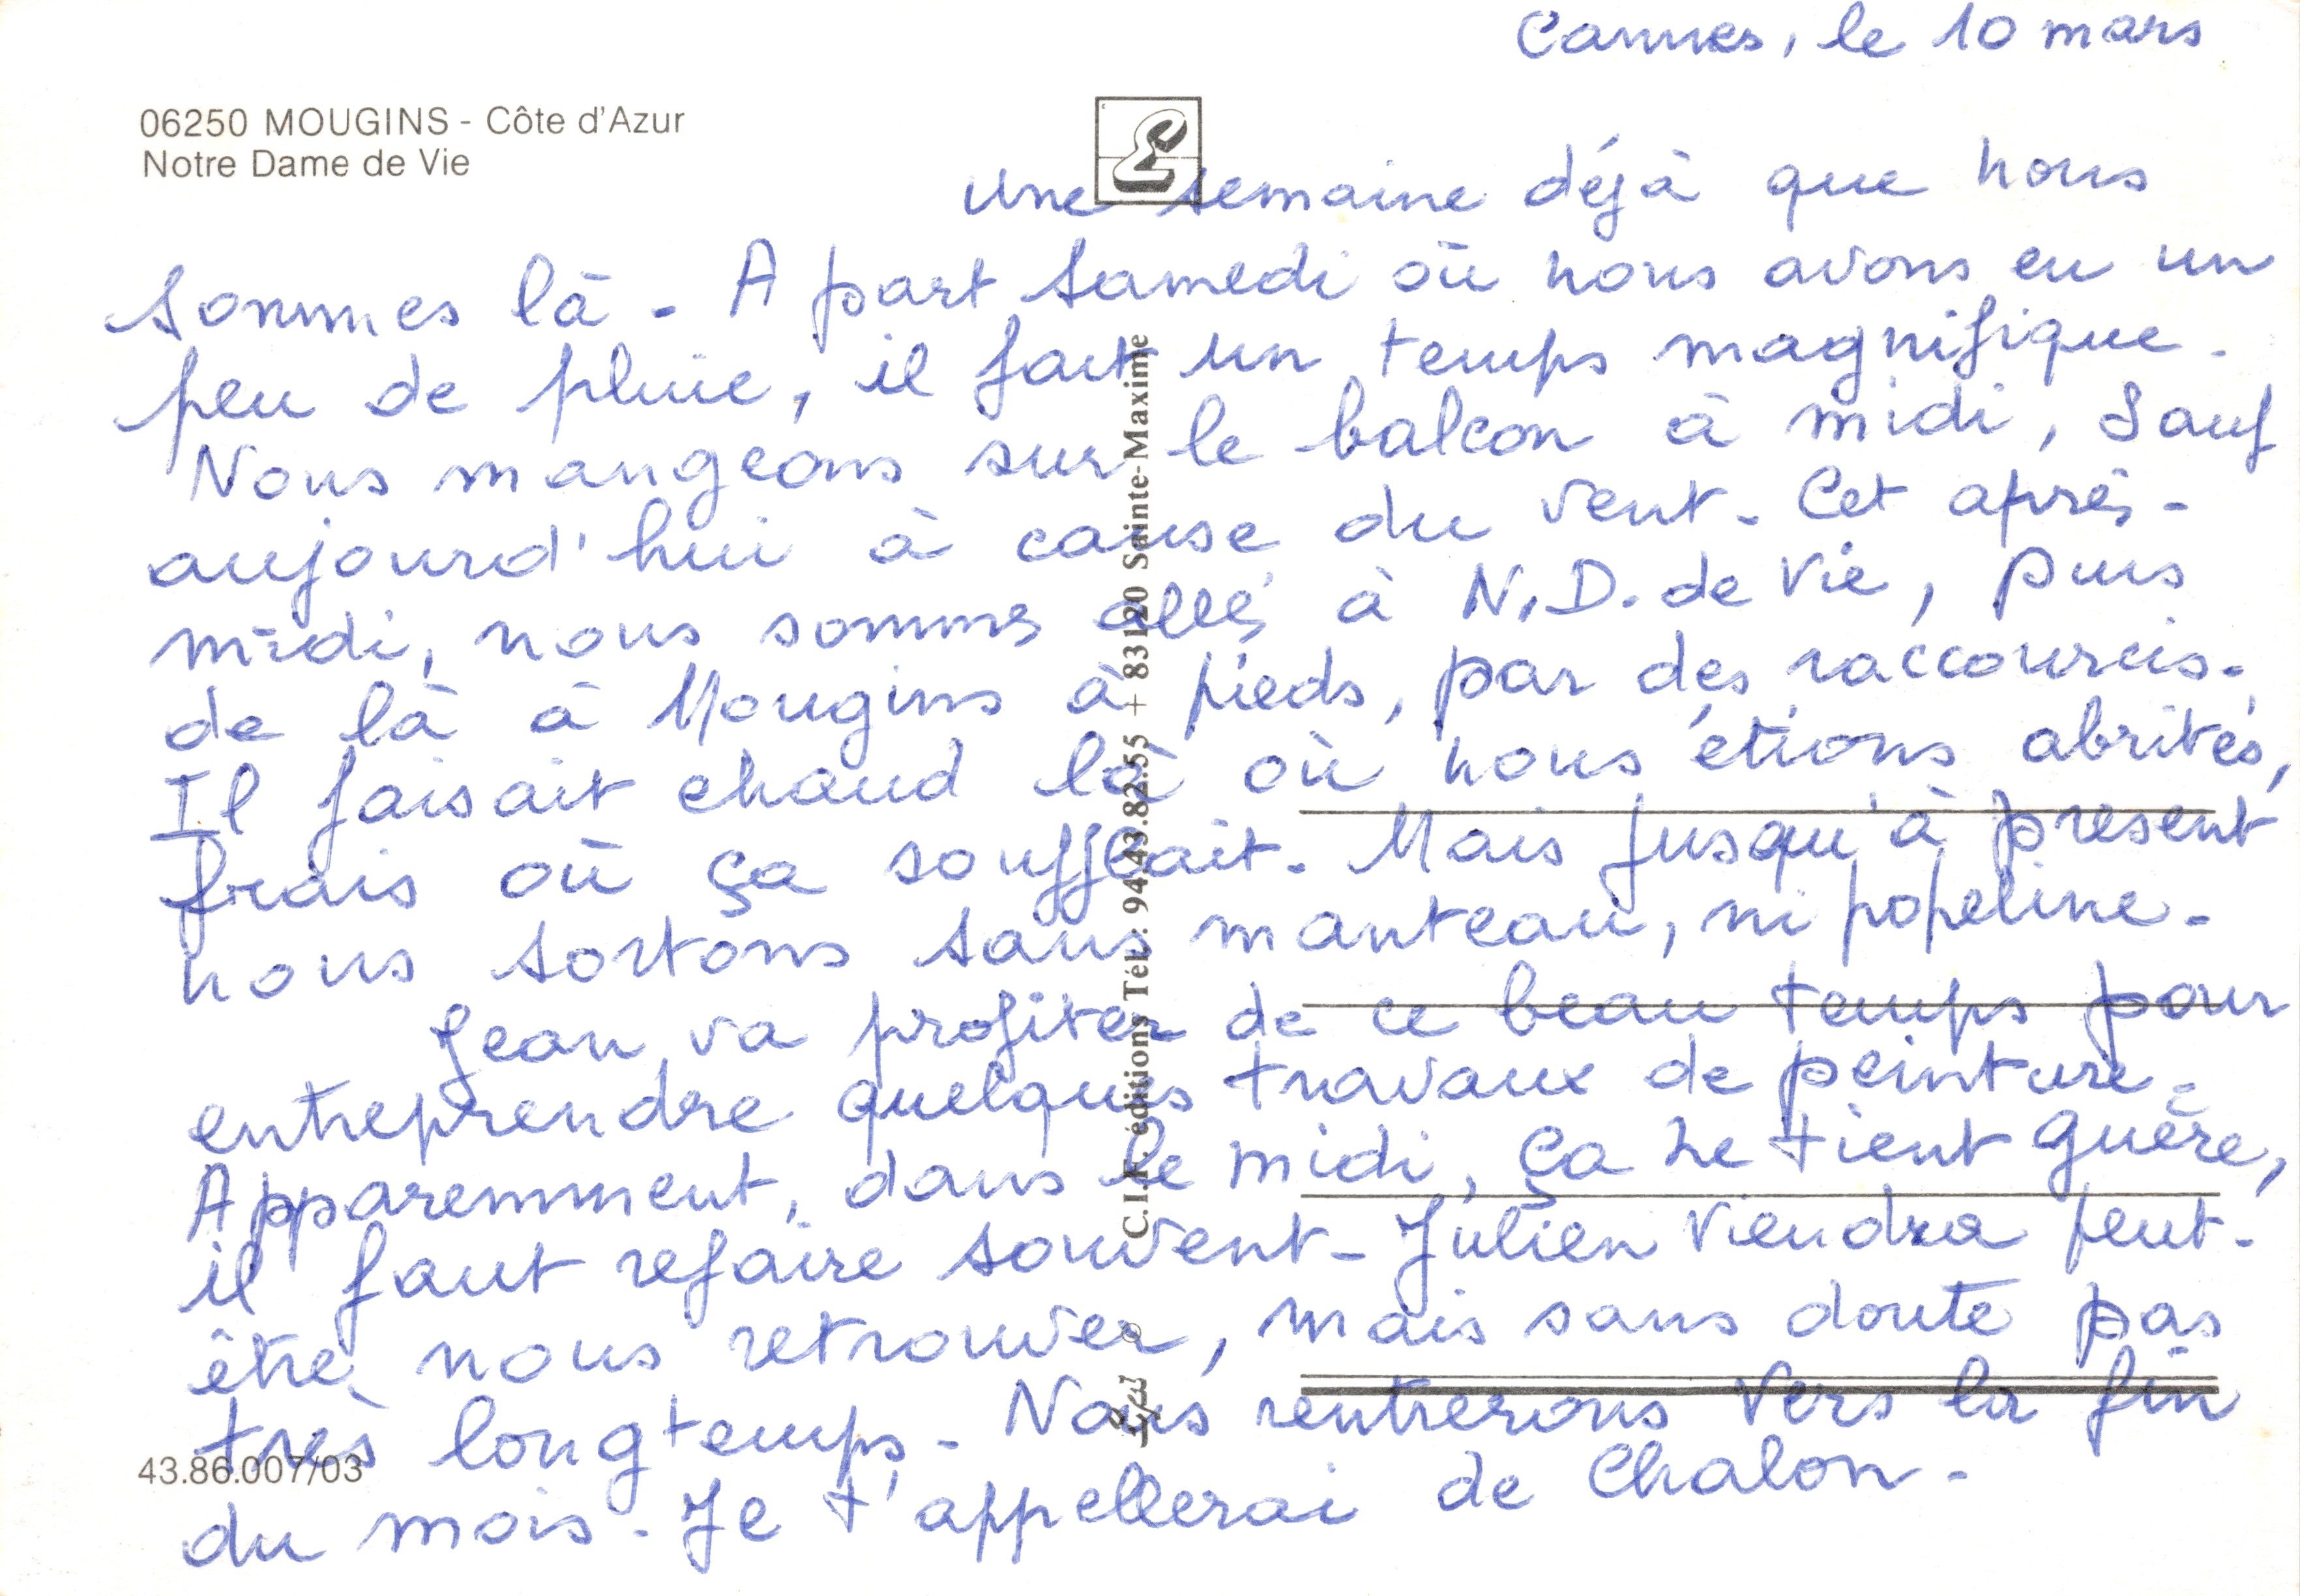 Cannes, le 10 mars
06250 MOUGINS - Côte d'Azur
Notre Dame de Vie
une semaine déjà que nous
sommes là - A part samedi où nous avons eu un
peu de pluie, il fait un temps magnifique.
Nous mangeons sur le balcon à midi, sauf
aujourd'hui à cause du vent - Cet après-
midi, nous sommes allés à N.D. de Vie, puis
de là à Mougins à pieds, par des raccourcis.
Il faisait chaud là où nous étions abrités,
frais où ça soufflait. Mais jusqu'à présent
nous sortons sans manteau, ni popeline -
Jean va profiter de ce beau temps pour
entreprendre quelques travaux de peinture -
Apparemment, dans le midi, ça ne tient guère,
il faut refaire souvent - Julien viendra peut-
être nous retrouver, mais sans doute pas
très longtemps - Nous rentrerons vers la fin
du mois - Je t'appellerai de Chalon -
43.86.007/03
C.I.F. éditions Tél.: 94.43.82.55 + 83120 Sainte-Maxime